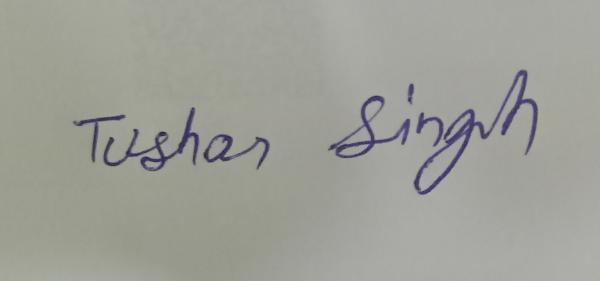 Tushar Singh